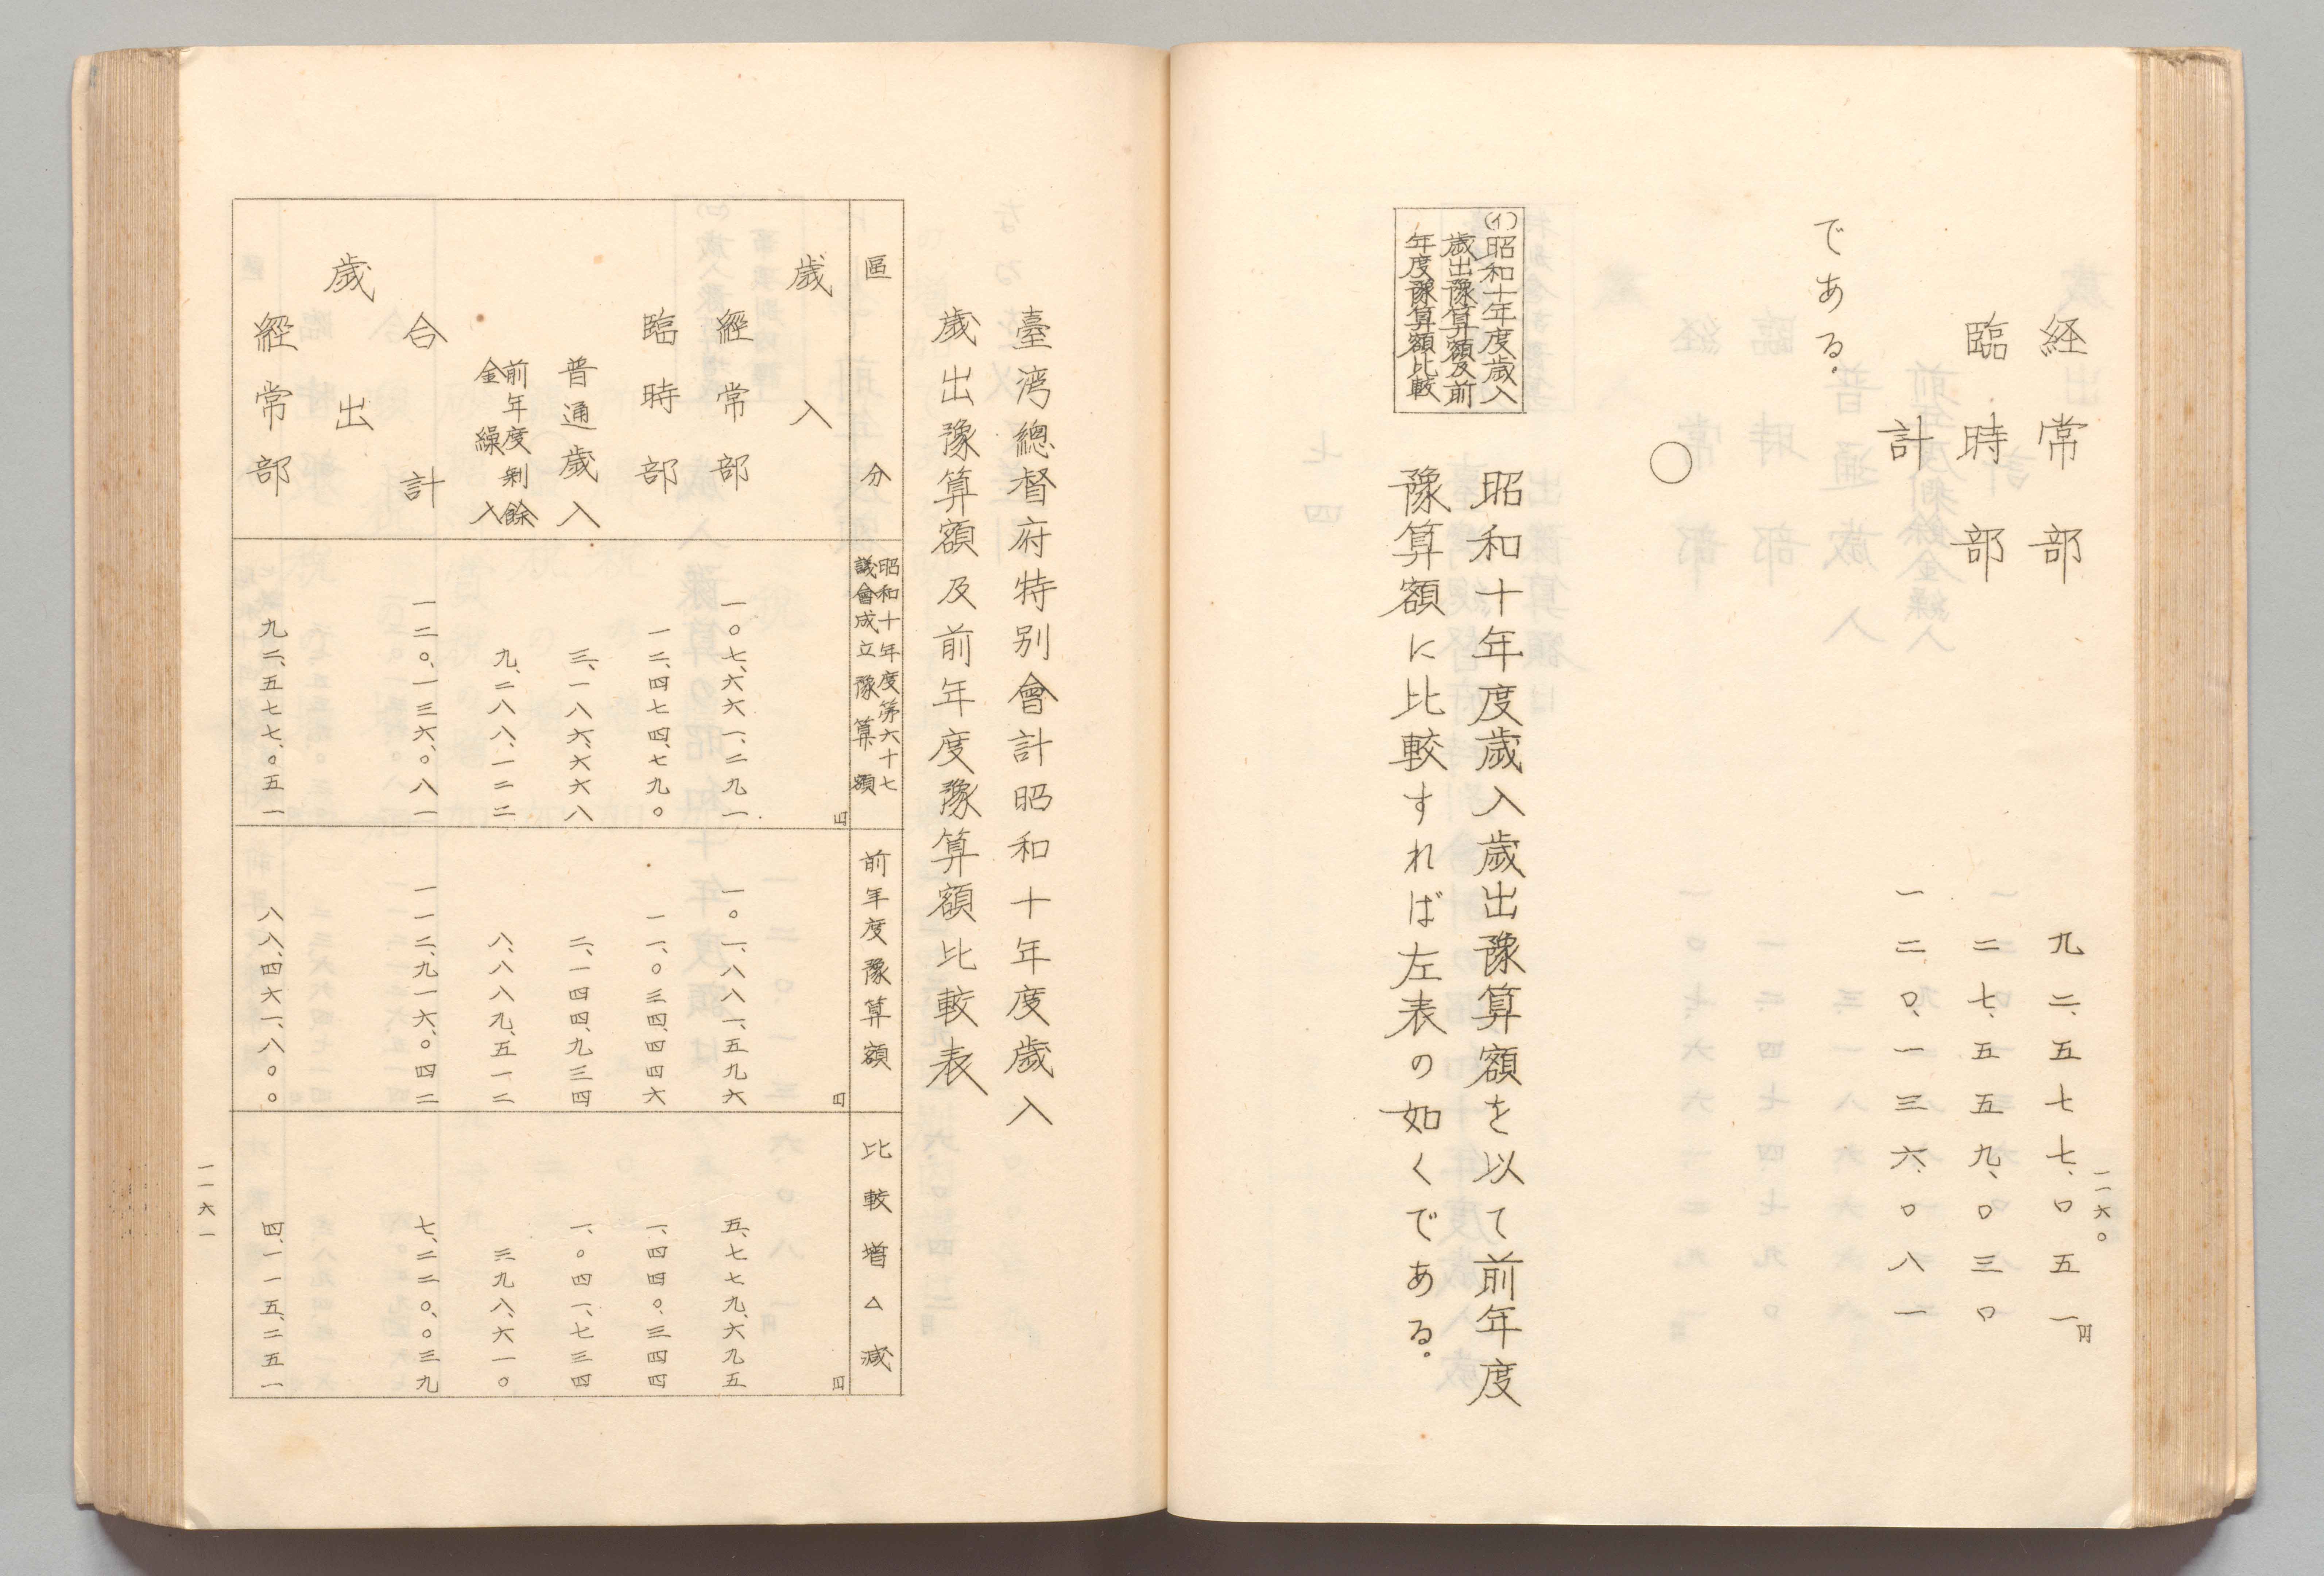 一一六〇
経常部　九二、五七七、〇五一円
臨時部　二七、五五九、〇三〇
計　一二〇、一三六、〇八一
である。
〇
(イ)昭和十年度歳入
歳出豫算額及前
年度豫算額比較
昭和十年度歳入歳出豫算額を以て前年度
豫算額に比較すれば左表の如くである。
臺湾總督府特別會計昭和十年度歳入
歳出豫算額及前年度豫算額比較表
區分　昭和十年度第六十七議會成立豫算額　前年度豫算額　比較增△減
歳入　円　円　円
經常部　一〇七、六六一、二九一　一〇一、八八一、五九六　五、七七九、六九五
臨時部　一二、四七四、七九〇　一一、〇三四、四四六　一、四四〇、三四四
普通歳入　三、一八六、六六八　二、一四四、九三四　一、〇四一、七三四
前年度剰餘金繰入　九、二八八、一二二　八、八八九、五一二　三九八、六一〇
合計　一二〇、一三六、〇八一　一一二、九一六、〇四二　七、二二〇、〇三九
歳出
經常部　九二、五七七、〇五一　八八、四六一、八〇〇　四、一一五、二五一
一一六一